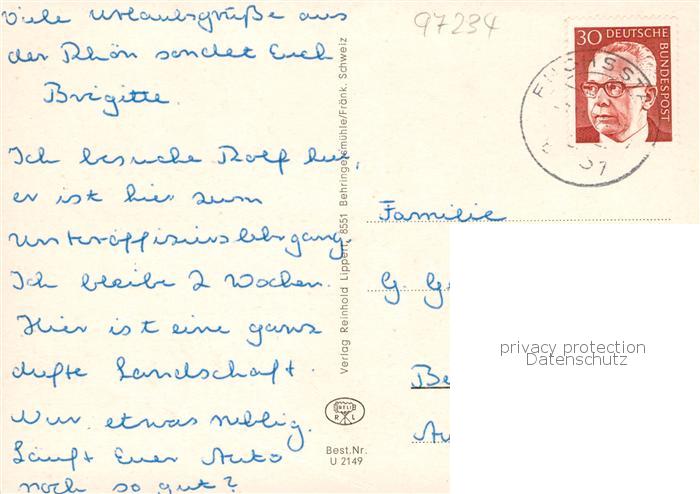 Viele Urlaubsgrüße aus
der Rhön sendet Euch
Brigitte.
Ich besuche Rolf hier,
er ist hier zum
Unteroffizierslehrgang.
Ich bleibe 2 Wochen.
Hier ist eine ganz
dufte Landschaft.
Nur etwas neblig.
Läuft Euer Auto
noch so gut?
Verlag Reinhold Lippert, 8551 Behringersmühle/Fränk. Schweiz
R L
Best.Nr.
U 2149
97234
30 DEUTSCHE
BUNDESPOST
Familie
G. Ge
Be
Au
privacy protection
Datenschutz